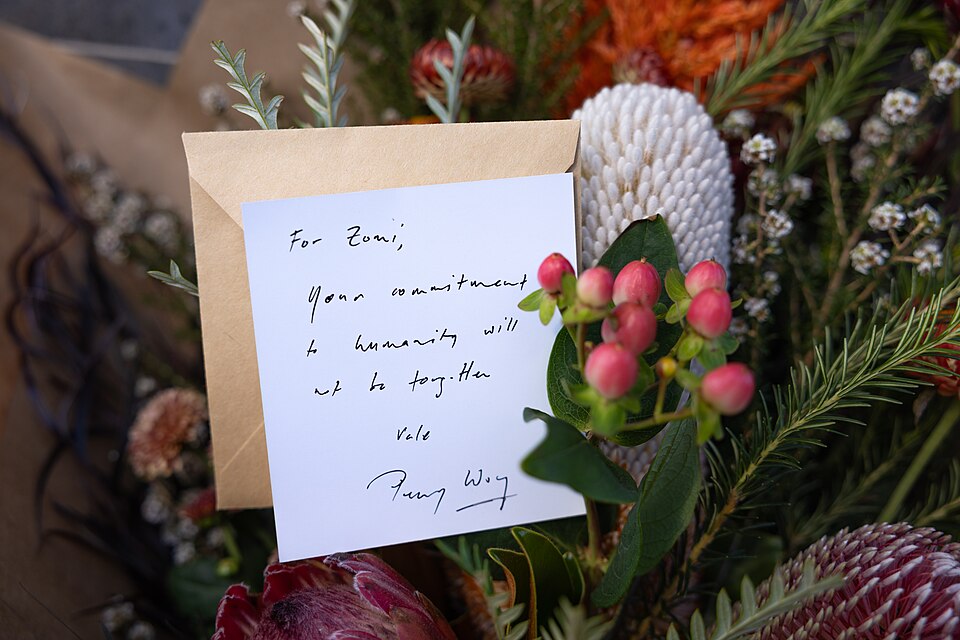 For Zomi,
Your commitment
to humanity will
not be forgotten
Vale
Penny Wong